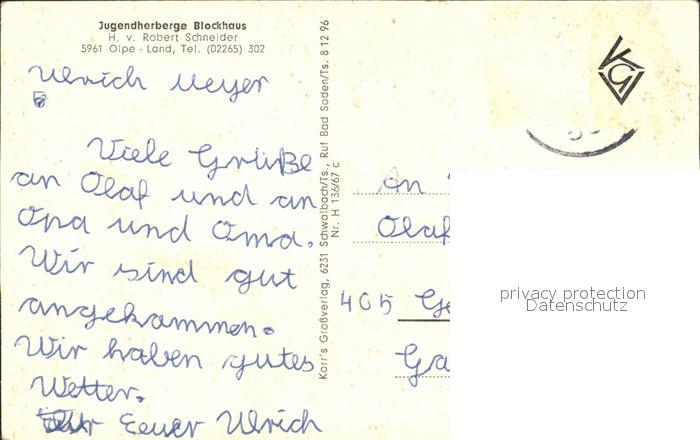 Jugendherberge Blockhaus
H. v. Robert Schneider
5961 Olpe - Land, Tel. (02265) 302
Ulrich Meyer
Viele Grüße
an Olaf und an
Opa und Oma.
Wir sind gut
angekommen.
Wir haben gutes
Wetter.
Eeuer Ulrich
Karr's Großverlag, 6231 Schwalbach/Ts., Ruf Bad Soden/Ts. 8 12 96
Nr. H 136/67 c
An
Olaf
405 Ge
Ga
KGV
privacy protection
Datenschutz